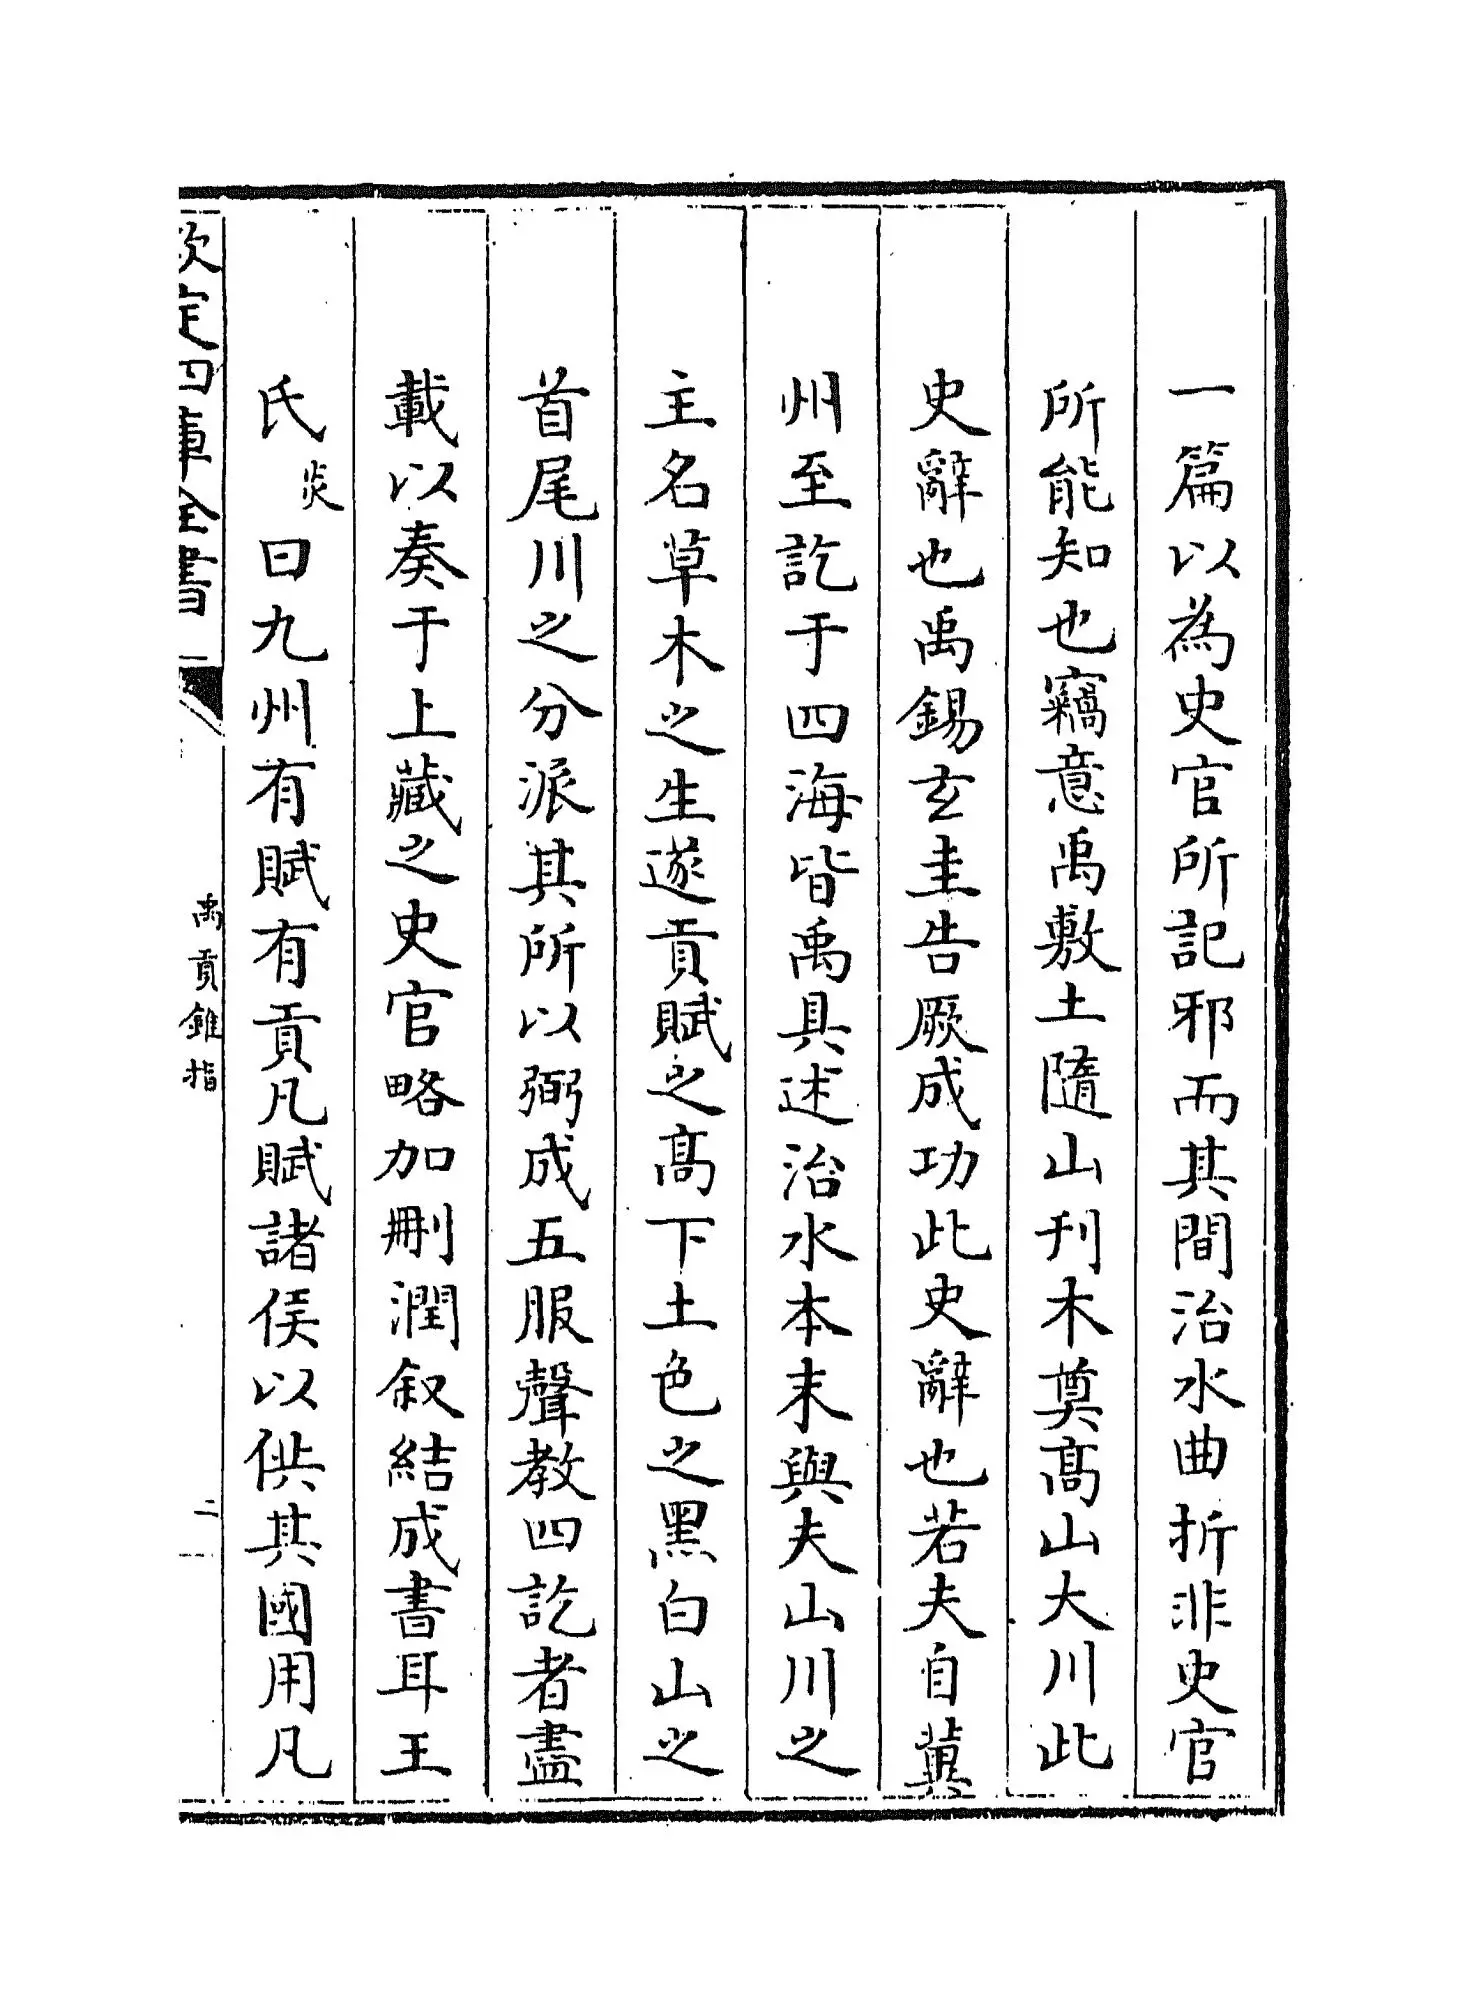 一篇以為史官所記邪而其間治水曲折非史官
所能知也竊意禹敷土隨山刊木奠高山大川此
史辭也禹錫玄圭告厥成功此史辭也若夫自冀
州至訖于四海皆禹具述治水本末與夫山川之
主名草木之生遂貢賦之高下土色之黑白山之
首尾川之分派其所以弼成五服聲教四訖者盡
載以奏于上藏之史官略加刪潤叙結成書耳王
氏炎曰九州有賦有貢凡賦諸侯以供其國用凡
欽定四庫全書
禹貢錐指
二